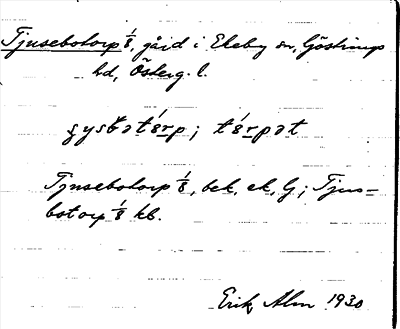 Tjusebotorp 1/8, gård i Ekeby sn, Göstrings
hd, Österg. l.
ɟysbotǝrp; tǝrpǝt
Tjusebotorp 1/8, bek. ek, G; Tjus=
botorp 1/8 kb.
Erik Alm 1930